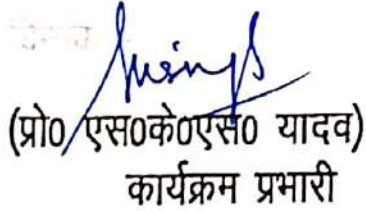 (प्रो0 एस0के0एस0 यादव)
कार्यक्रम प्रभारी